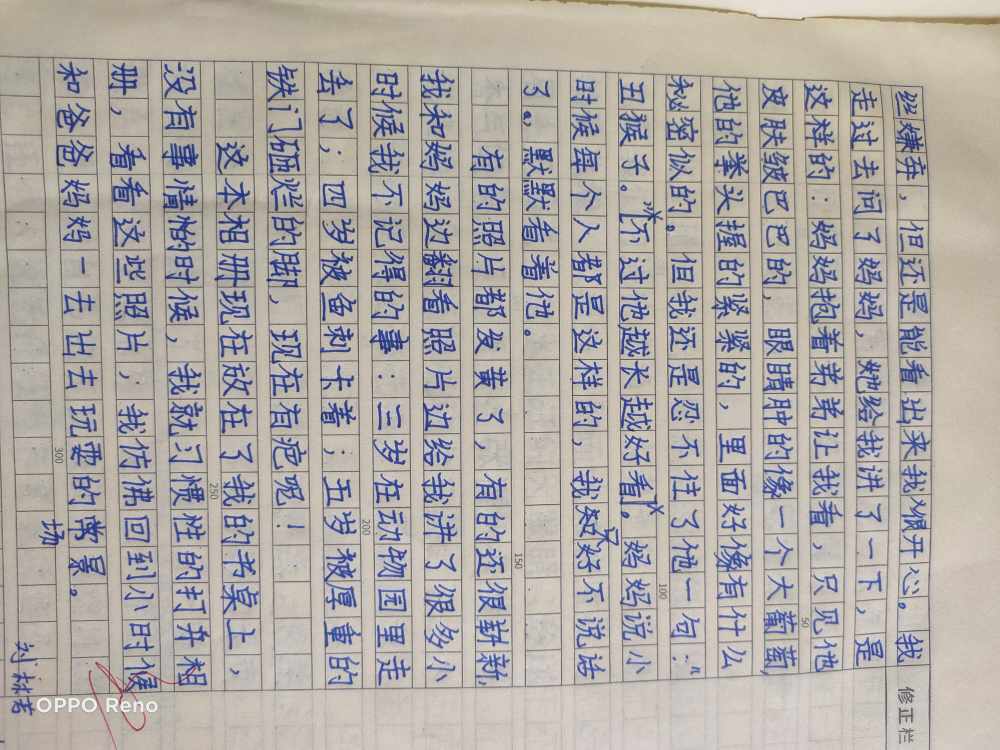 嫌弃，但还是能看出来我很开心。我
走过去问了妈妈，她给我讲了一下，是
这样的：妈妈抱着弟弟让我看，只见他
皮肤皱巴巴的，眼睛肿的像一个大葡萄，
他的拳头握的紧紧的，里面好像有什么
秘密似的。但我还是忍不住了他一句：“
丑猴子。”不过他越长越好看。妈妈说小
时候每个人都是这样的，我只好不说话
了。默默看着他。
有的照片都发黄了，有的还很崭新，
我和妈妈边翻看照片边给我讲了很多小
时候我不记得的事：三岁在动物园里走
丢了，四岁被鱼刺卡着；五岁被厚重的
铁门砸烂的脚，现在有疤呢！
这本相册现在放在了我的书桌上，
没有事情怕的时候，我就习惯性的打开相
册，看看这些照片，我仿佛回到小时候
和爸爸妈妈一去出去玩耍的常景。
场
50
100
150
200
250
300
修正栏
OPPO Reno